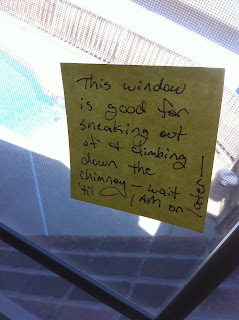 This window
is good for
sneaking out
of & climbing
down the
chimney — wait
'til / Ash on
later —